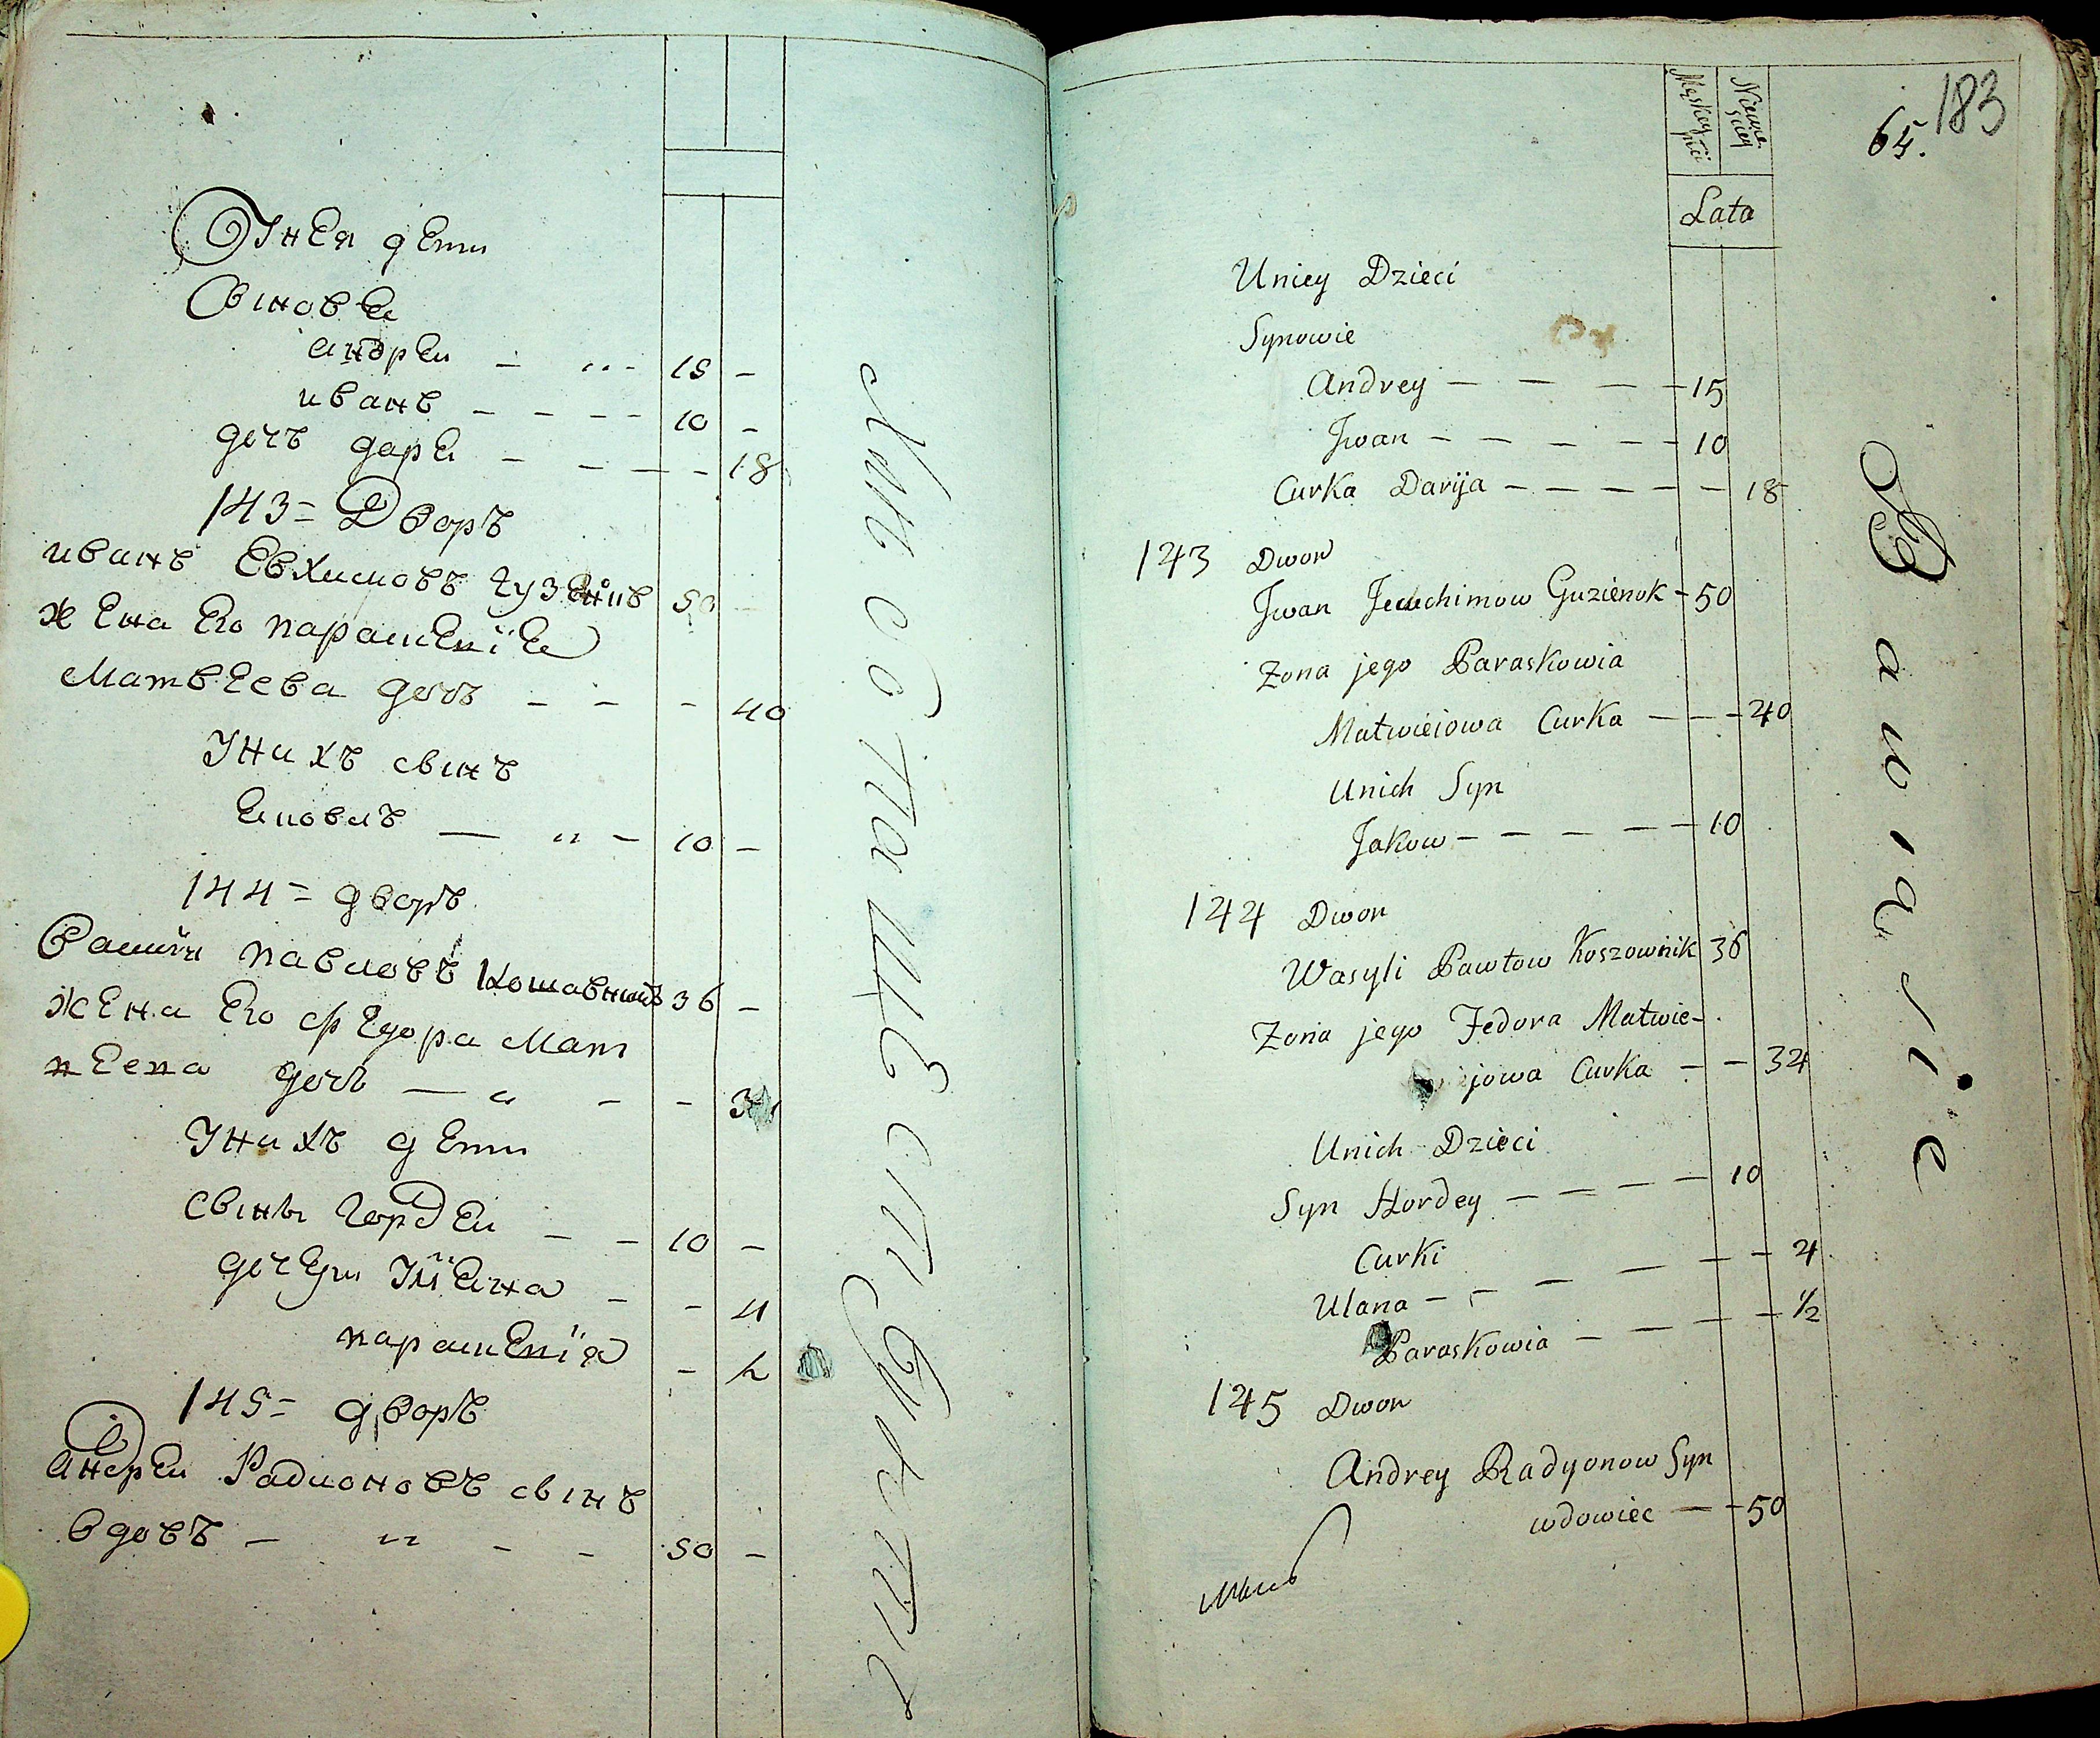 Унея дети
Сынове
андреи 15 -
иванъ 10 -
дочъ даря 18
143 = Дворъ
иванъ Евхимовъ Гузенокъ 50
жена Его парасковiя
Матвеева дочъ 40
Унихъ сынъ
Яковъ 10 -
144 = дворъ
Васили павловъ Кошавникъ 36 -
жена Его федора Мат
веева дочъ
Унихъ дети
сынъ Гордеи 10 -
дочери Улiяна 4
парасковiя - ½
145 = дворъ
андреи Радионовъ сынъ
вдовъ 50 -
65. 183
Męskey płci
Niewieściey
Lata
Uniey Dzieci
Synowie
Andrey 15
Jwan 10
Curka Darija 18
143 Dwor
Jwan Jeuchimow Guzienok 50
Zona jego Paraskowia
Matwieiowa Curka 40
Unich Syn
Jakow 10
144 Dwor
Wasyli Pawłow Koszownik 36
Zona jego Fedora Matwie-
jowa Curka 34
Unich Dzieci
Syn Hordey 10
Curki
Ulana 4
Paraskowia ½
145 Dwor
Andrey Radyonow Syn
wdowiec 50